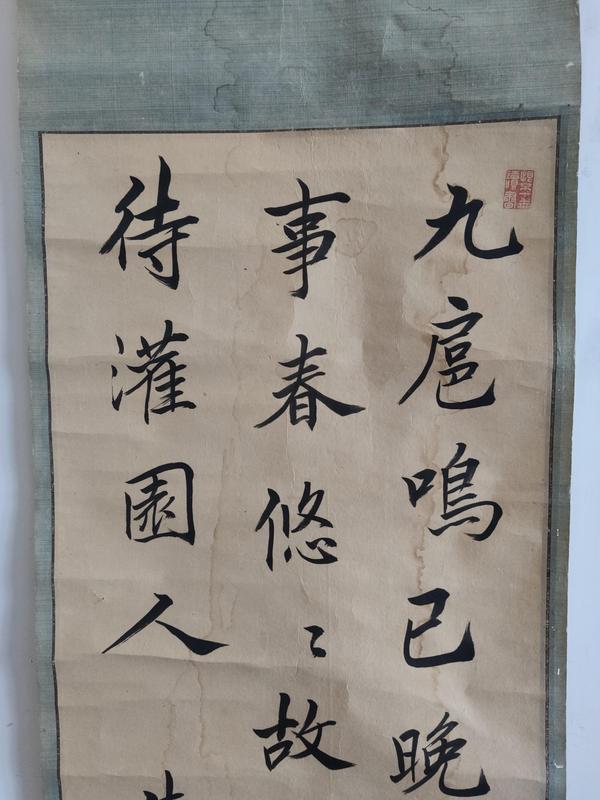 九扈鳴已晚
事春悠〻故
待灌園人